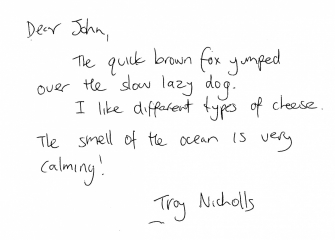 Dear John,
The quick brown fox jumped
over the slow lazy dog.
I like different types of cheese.
The smell of the ocean is very
calming!
Troy Nicholls